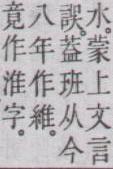 水。蒙上文言
誤。蓋班从今
八年作維。
竟作淮字。